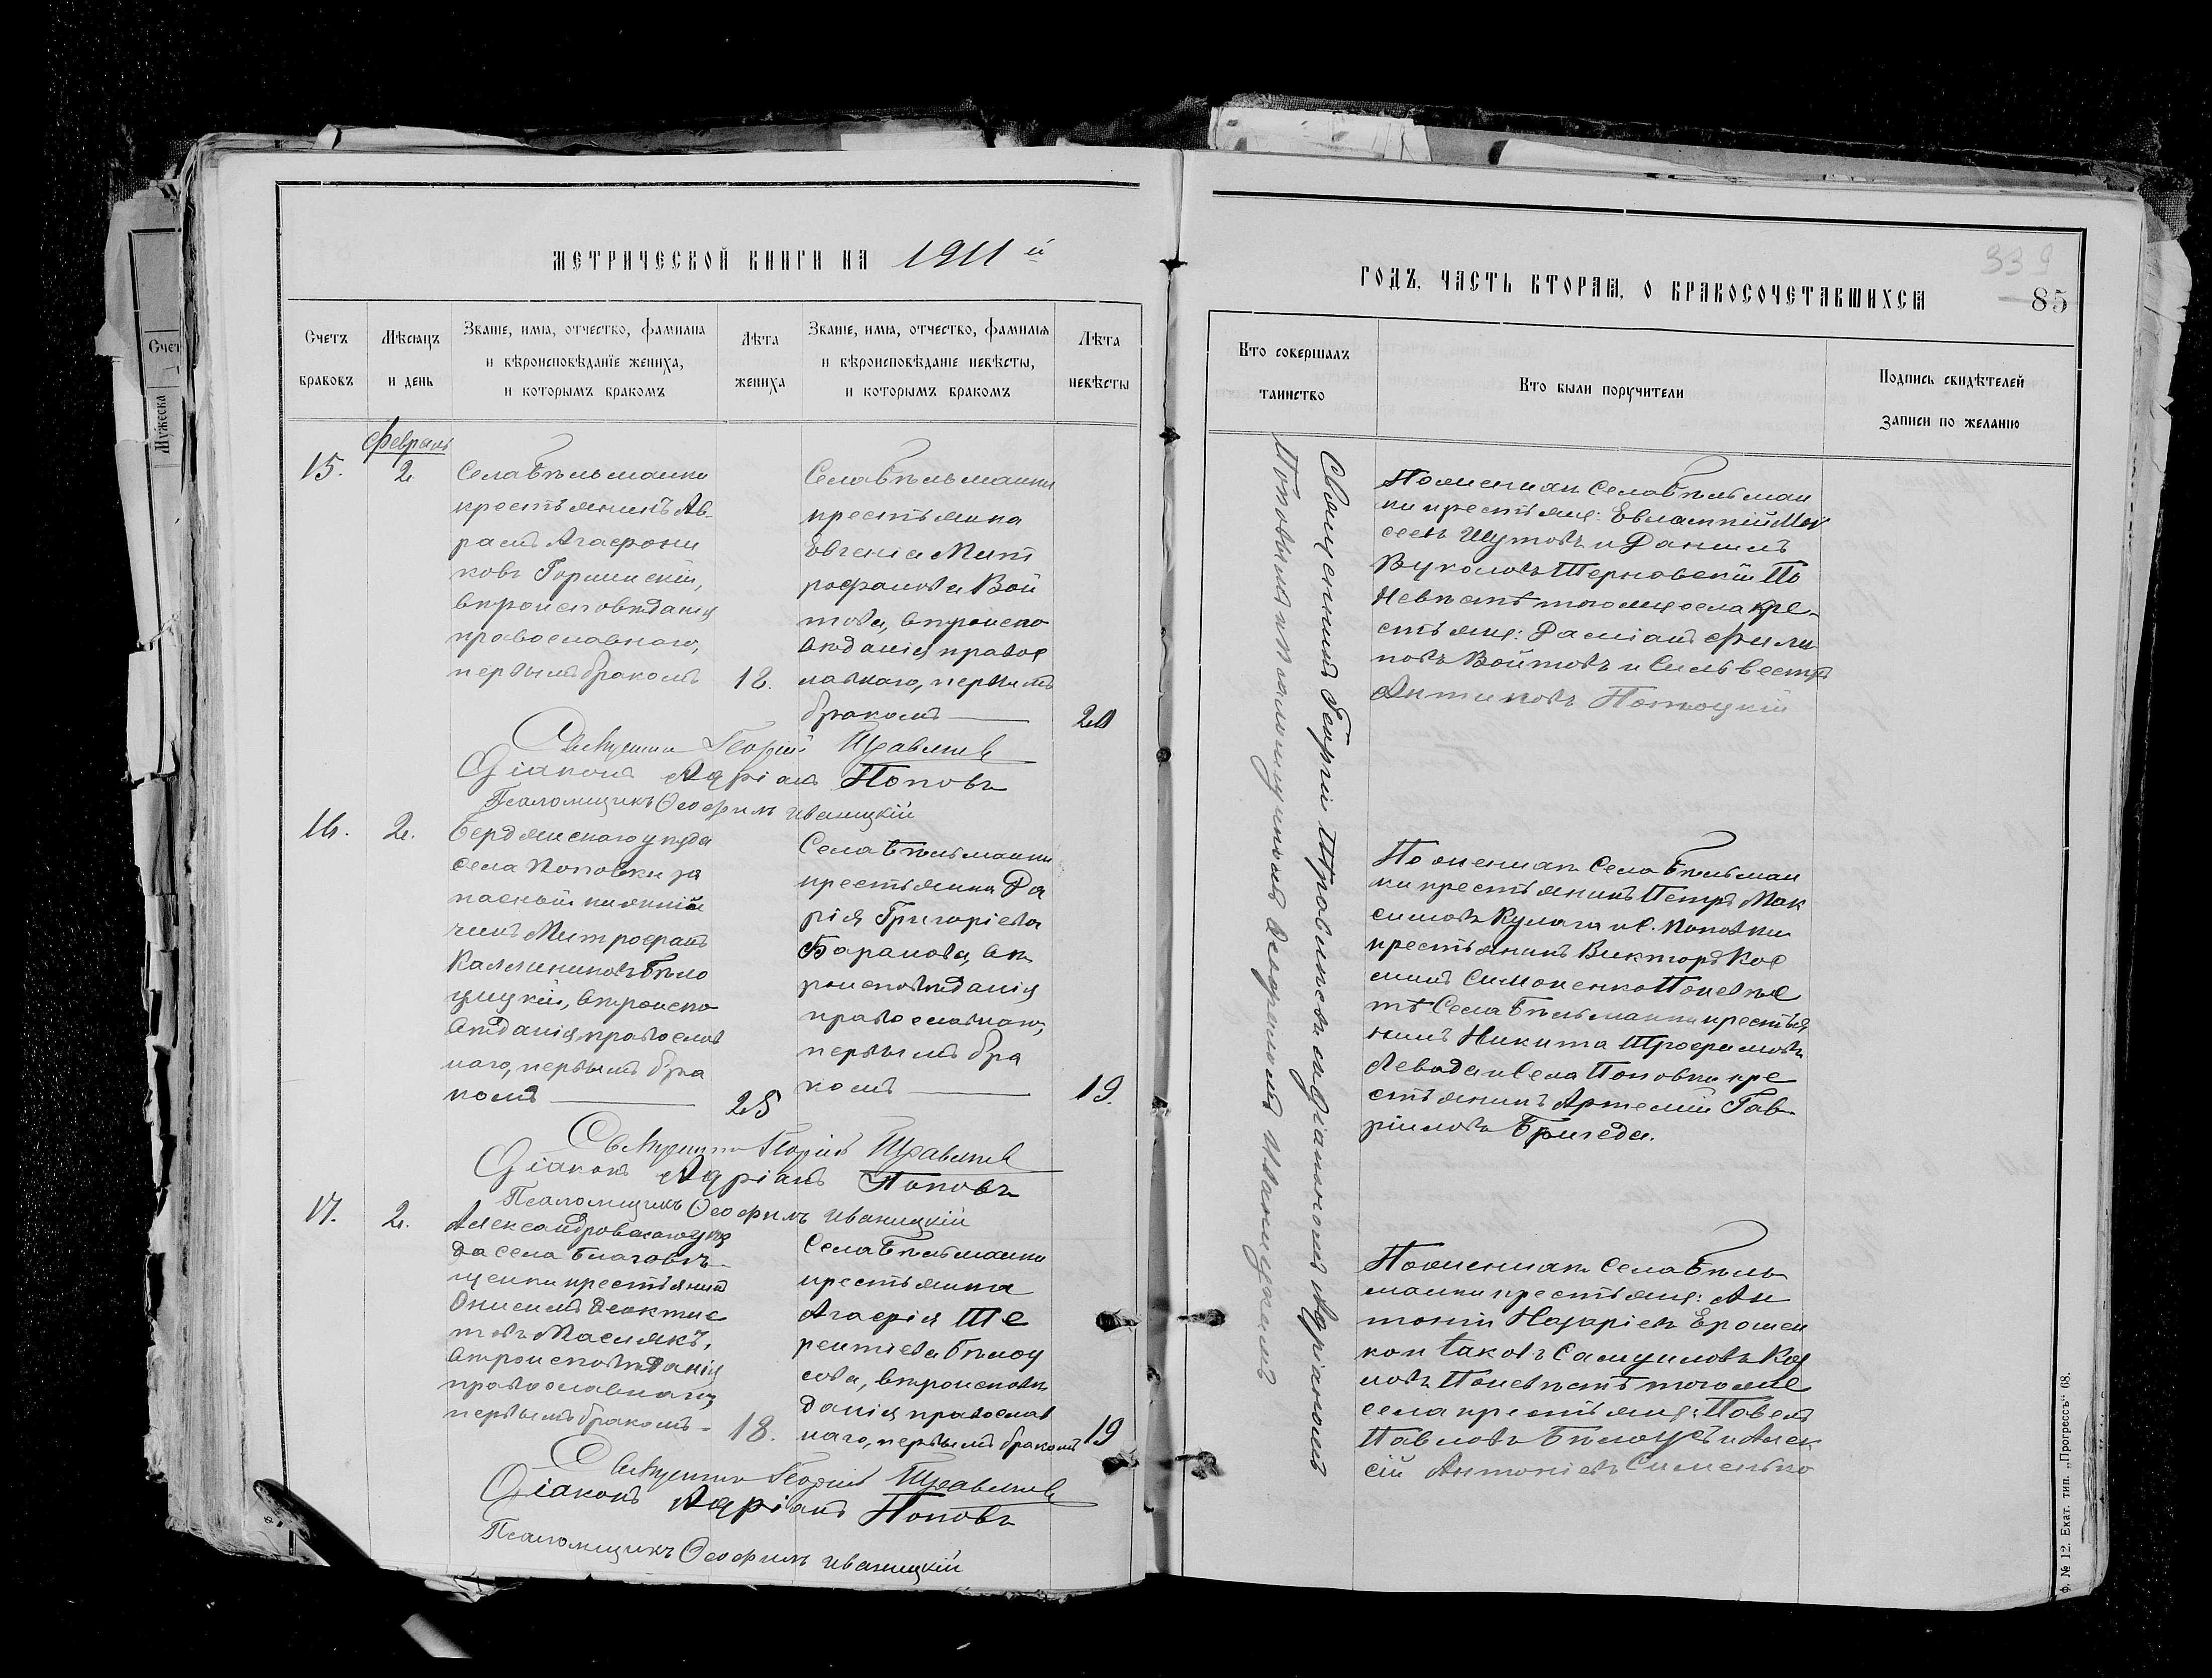 МЕТРИЧЕСКОЙ КНИГИ НА 1911 й
Счетъ
браковъ
Мѣсяцъ
и день
Званіе, имя, отчество, фамилія
и вѣроисповѣданіе жениха,
и которымъ бракомъ
Лѣта
жениха
Званіе, имя, отчество, фамилія
и вѣроисповѣданіе невѣсты,
и которымъ бракомъ
Лѣта
невѣсты
Февраль
15.
2.
Села Бѣльманки
крестьянинъ Ав-
рамъ Агафони
ковъ Горлинскій,
вѣроисповѣданія
православнаго,
первымъ бракомъ
18.
Села Бѣльманки
крестьянка
Евгенія Мит
рофанова Вой
това, вѣроиспо
вѣданія правос
лавнаго, первымъ
бракомъ
20
Священникъ Георгій
Діаконъ Адріанъ Поповъ
Псаломщикъ Ѳеофилъ Иваницкій
16.
2.
Бердянскаго уѣзда
села Поповки за
пасный нижній
чинъ Митрофанъ
Каллиниковъ Бѣло
уцкій, вѣроиспо
вѣданія православ
наго, первымъ бра
комъ
25
Села Бѣльманки
крестьянка Да
рія Григоріева
Баранова, вѣ
роисповѣданія
православнаго,
первымъ бра
комъ
19.
Священникъ Георгій
Діаконъ Адріанъ Поповъ
Псаломщикъ Ѳеофилъ Иваницкій
17.
2.
Александровскаго уѣз
да села Благовѣ-
щенки крестьянинъ
Онисимъ Ѳеоктис
товъ Маслякъ,
вѣроисповѣданія
православнаго,
первымъ бракомъ
18.
Села Бѣльманки
крестьянка
Агафія Те
рентіева Бѣлоу
сова, вѣроисповѣ
данія православ
наго, первымъ бракомъ
19
Священникъ Георгій
Діаконъ Адріанъ Поповъ
Псаломщикъ Ѳеофилъ Иваницкій
ГОДЪ, ЧАСТЬ ВТОРАЯ, О БРАКОСОЧЕТАВШИХСЯ
339
85
Кто совершалъ
таинство
Кто были поручители
Подпись свидѣтелей
записи по желанію
Священникъ Георгій съ діакономъ Адріаномъ
Поповымъ и псаломщикомъ Ѳеофиломъ Иваницкимъ
По женихѣ села Бѣльман
ки крестьяне: Евлампій Мои
сеевъ Шутовъ и Даніилъ
Вуколовъ Терновскій По
невѣстѣ того же села кре-
стьяне: Даміанъ Фили
повъ Войтовъ и Сильвестръ
Антиповъ
По женихѣ села Бѣльман
ки крестьянинъ Петръ Мак
симовъ Кулага и с. Поповки
крестьянинъ Викторъ Кос
минъ Симоненко По невѣс
тѣ Села Бѣльманки крестья
нинъ Никита Трофимовъ
Левада и Села Поповки кре
стьянинъ Артемій Гав-
ріиловъ Бригеда.
По женихѣ села Бѣль
манки крестьяне: Ан
тоній Назаріевъ Ерошен
ко и Іаковъ Самуиловъ Коз
ловъ По невѣстѣ того же
села крестьяне: Павелъ
Павловъ Бѣлоусъ и Алек
сій Антоніевъ Сименько
Ф. № 12. Екат. тип. „Прогрессъ" 68.
Счет
Мужеска